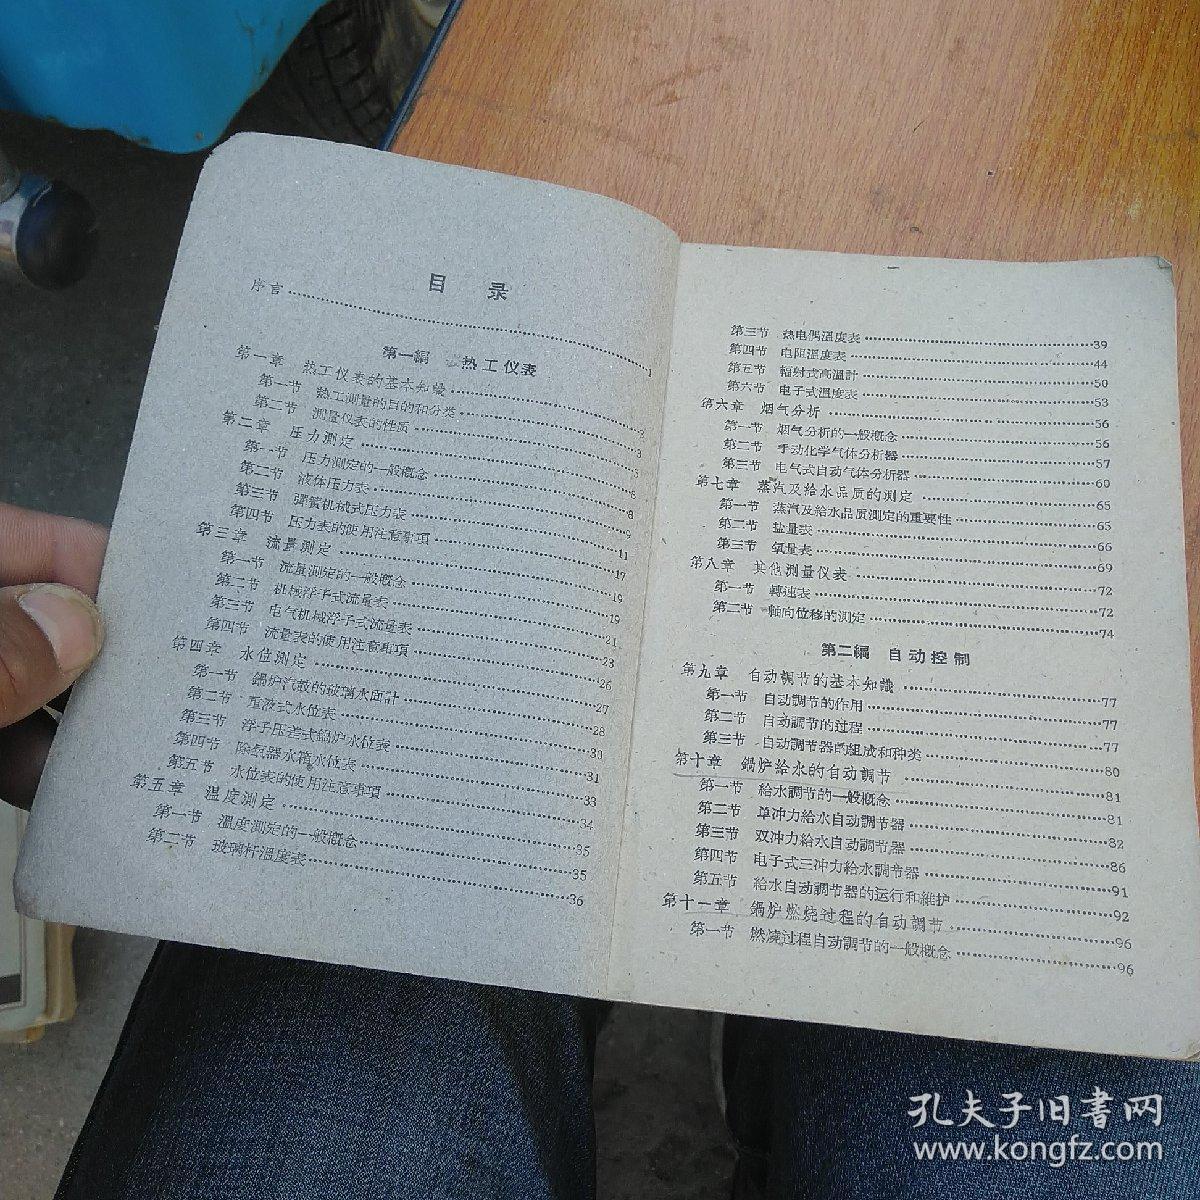 目 录
序言 1
第一編 热工仪表
第一章 热工仪表的基本知識
第一节 热工测量的目的和分类
第二节 测量仪表的性质
第二章 压力测定
第一节 压力测定的一般概念
第二节 液体压力表
第三节 彈簧机械式压力表
第四节 压力表的使用注意事項
第三章 流量测定
第一节 流量测定的一般概念
第二节 机械浮子式流量表
第三节 电气机械浮子式流量表
第四节 流量表的使用注意事項
第四章 水位测定
第一节 鍋炉汽鼓的玻璃水面計
第二节 重液式水位表
第三节 浮子压差式鍋炉水位表
第四节 除氧器水箱水位表
第五节 水位表的使用注意事項
第五章 温度测定
第一节 溫度测定的一般概念 35
第二节 玻璃杆溫度表 36
第三节 热电偶溫度表 39
第四节 电阻溫度表 44
第五节 輻射式高溫計 50
第六节 电子式溫度表 53
第六章 烟气分析 56
第一节 烟气分析的一般概念 56
第二节 手动化学气体分析器 57
第三节 电气式自动气体分析器 60
第七章 蒸汽及給水品质的测定 65
第一节 蒸汽及給水品质测定的重要性 65
第二节 盐量表 66
第三节 氧量表 69
第八章 其他测量仪表 72
第一节 轉速表 72
第二节 軸向位移的测定 74
第二編 自动控制
第九章 自动調节的基本知識 77
第一节 自动調节的作用 77
第二节 自动調节的过程 77
第三节 自动調节器的組成和种类 80
第十章 鍋炉給水的自动調节 81
第一节 給水調节的一般概念 81
第二节 单冲力給水自动調节器 82
第三节 双冲力給水自动調节器 86
第四节 电子式三冲力給水調节器 91
第五节 給水自动調节器的运行和維护 92
第十一章 鍋炉燃烧过程的自动調节 96
第一节 燃烧过程自动調节的一般概念 96
孔夫子旧書网
www.kongfz.com